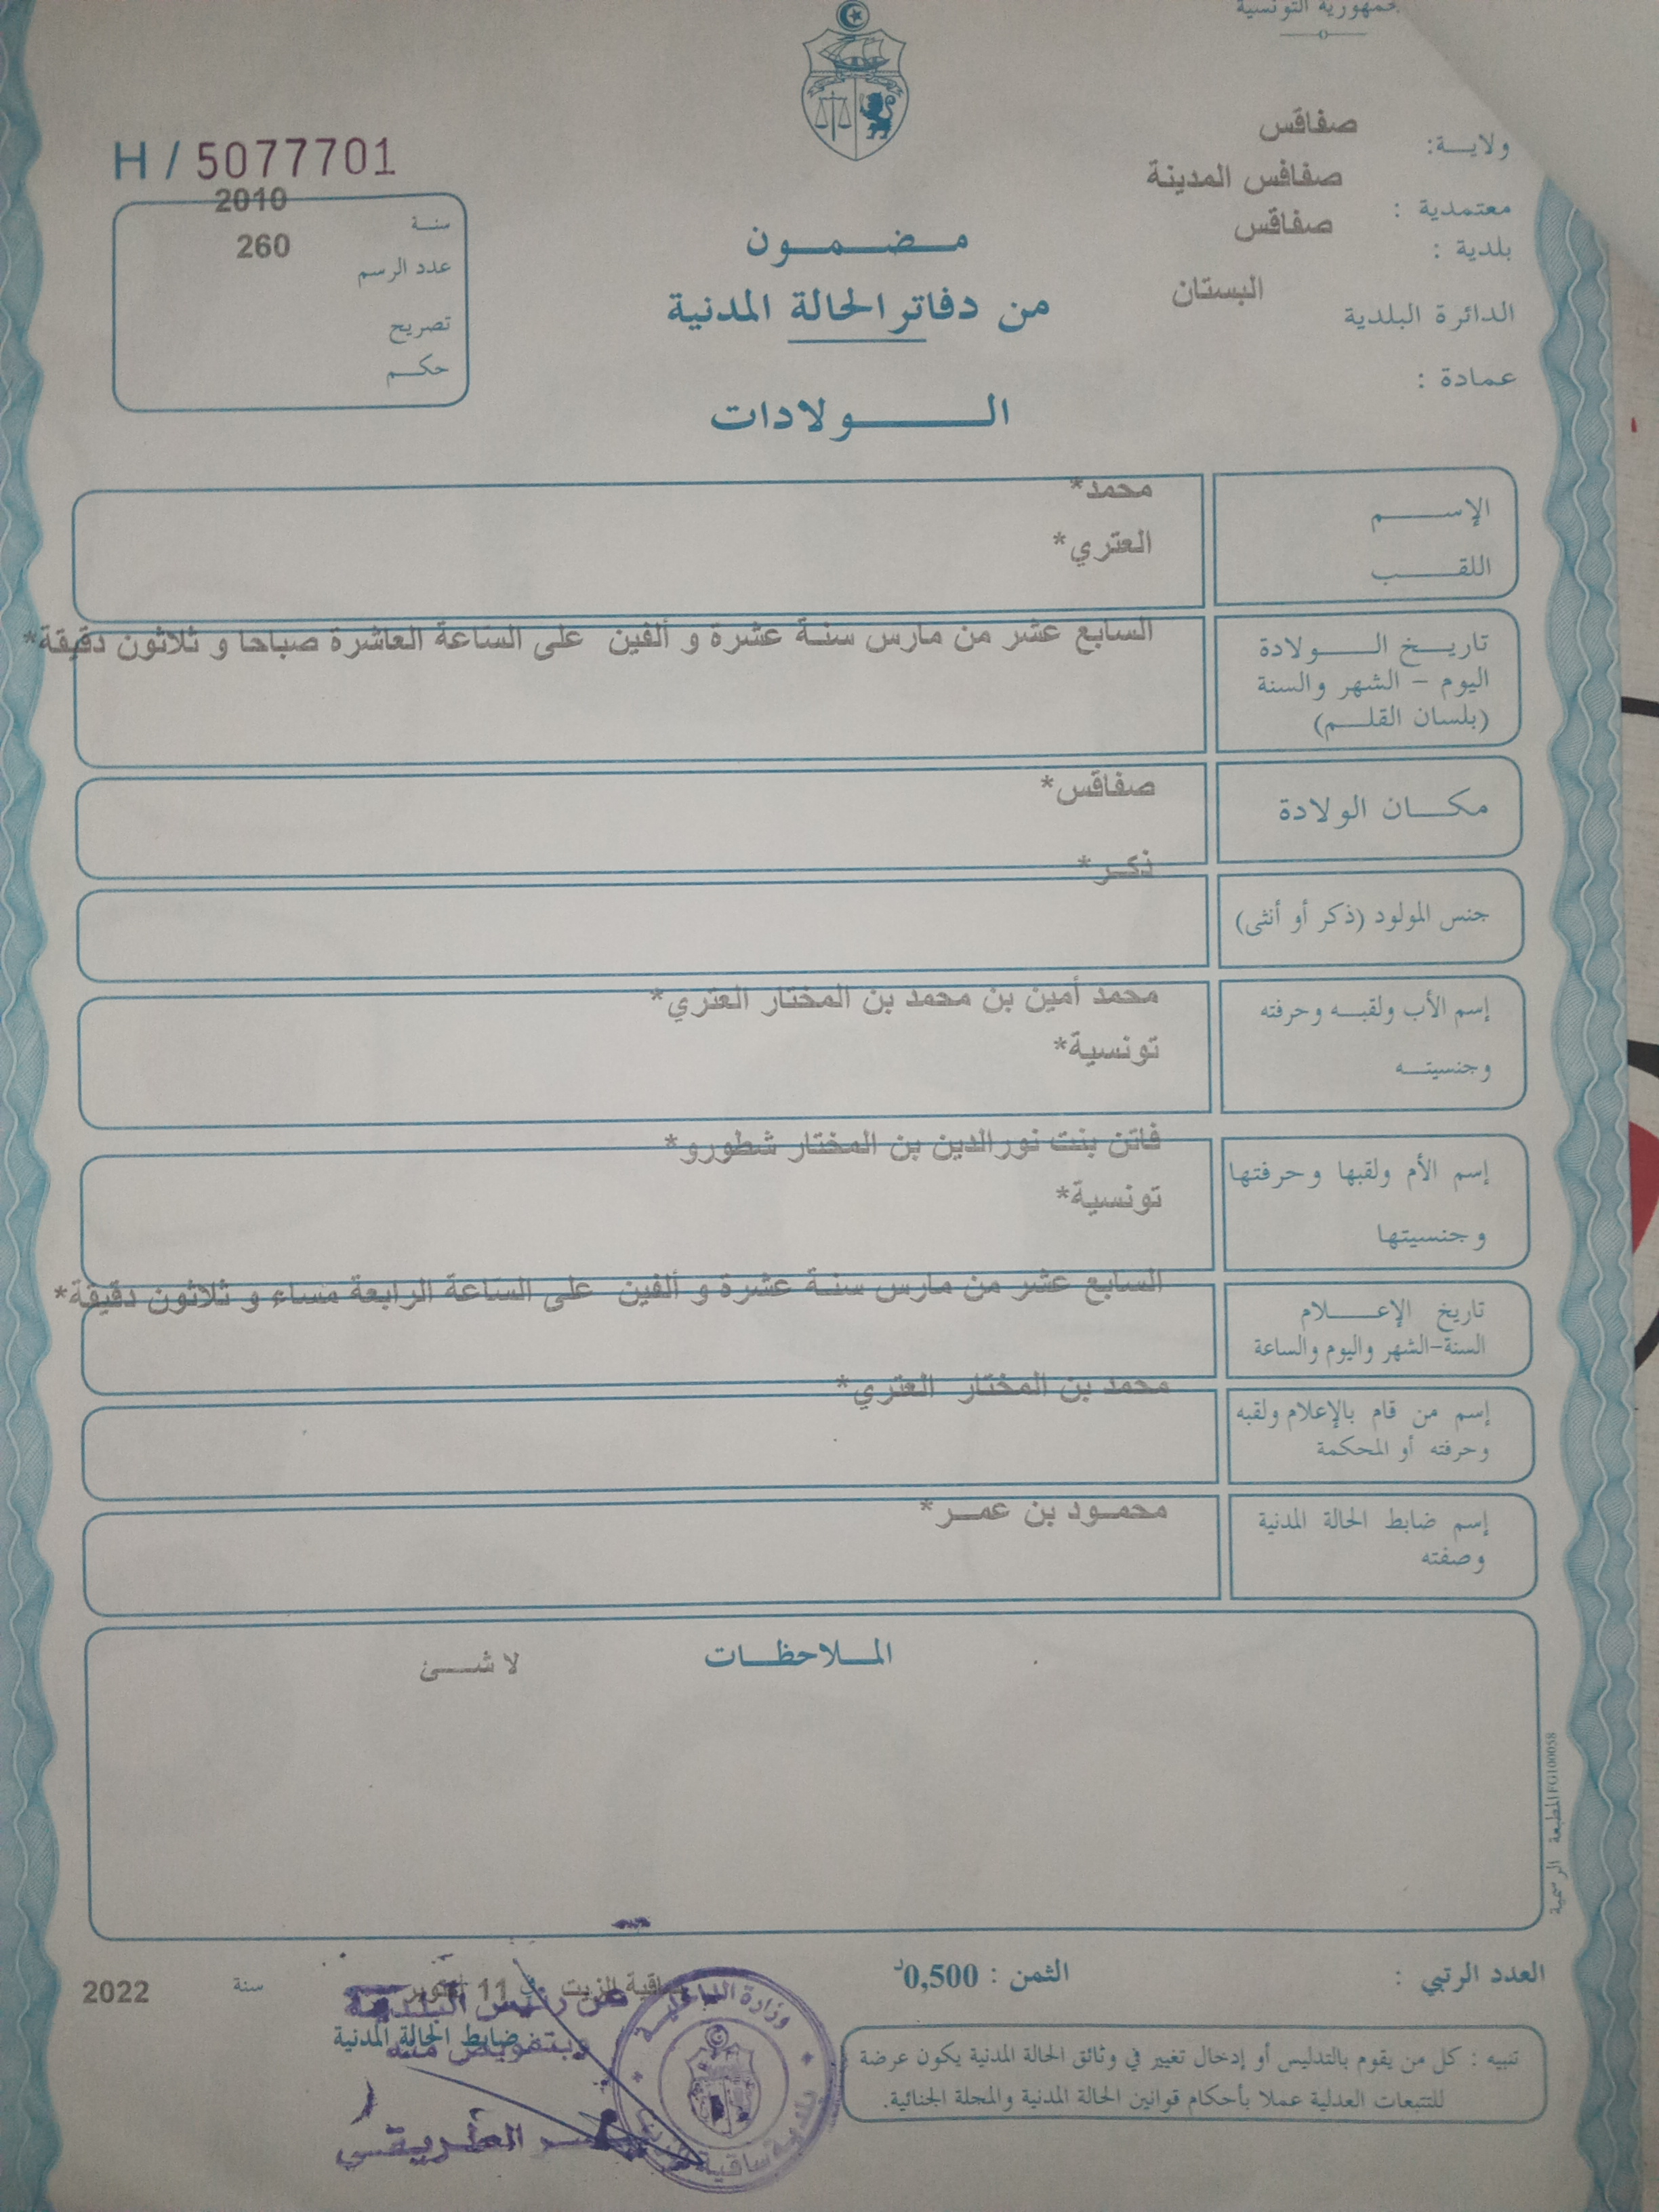 جمهورية التونسية
ولايـــة: صفاقس
معتمدية : صفاقس المدينة
بلدية : صفاقس
الدائرة البلدية البستان
عمادة :
H / 5077701
سنــة 2010
عدد الرسم 260
تصريح
حكـــم
مــضــمــون
من دفاتر الحالة المدنية
الــــولادات
الإســـــم محمد*
اللقـــــب العتري*
تاريـــخ الـــــولادة
اليوم – الشهر والسنة
(بلسان القلـــم)
السابع عشر من مارس سنة عشرة و ألفين على الساعة العاشرة صباحا و ثلاثون دقيقة*
مكـــان الولادة صفاقس*
جنس المولود (ذكر أو أنثى) ذكـر*
إسم الأب ولقبـــه وحرفته محمد أمين بن محمد بن المختار العتري*
وجنسيتـــه تونسية*
إسم الأم ولقبها وحرفتها فاتن بنت نورالدين بن المختار شطورو*
وجنسيتها تونسية*
تاريخ الإعـــــلام
السنة-الشهر واليوم والساعة
السابع عشر من مارس سنة عشرة و ألفين على الساعة الرابعة مساء و ثلاثون دقيقة*
إسم من قام بالإعلام ولقبه
وحرفته أو المحكمة
محمد بن المختار العتري*
إسم ضابط الحالة المدنية
وصفته
محمـود بن عمـر*
المـــلاحظـــات
لا شـــئ
المطبعة الرسمية FG100058
العدد الرتبي :
الثمن : 0,500د
ساقية الزيت في 11 أكتوبر سنة 2022
عن رئيس البلدية
وبتفويض منه
ضابط الحالة المدنية
الطريقي
وزارة الداخلية
بلدية ساقية الزيت
تنبيه : كل من يقوم بالتدليس أو إدخال تغيير في وثائق الحالة المدنية يكون عرضة
للتتبعات العدلية عملا بأحكام قوانين الحالة المدنية والمجلة الجنائية.